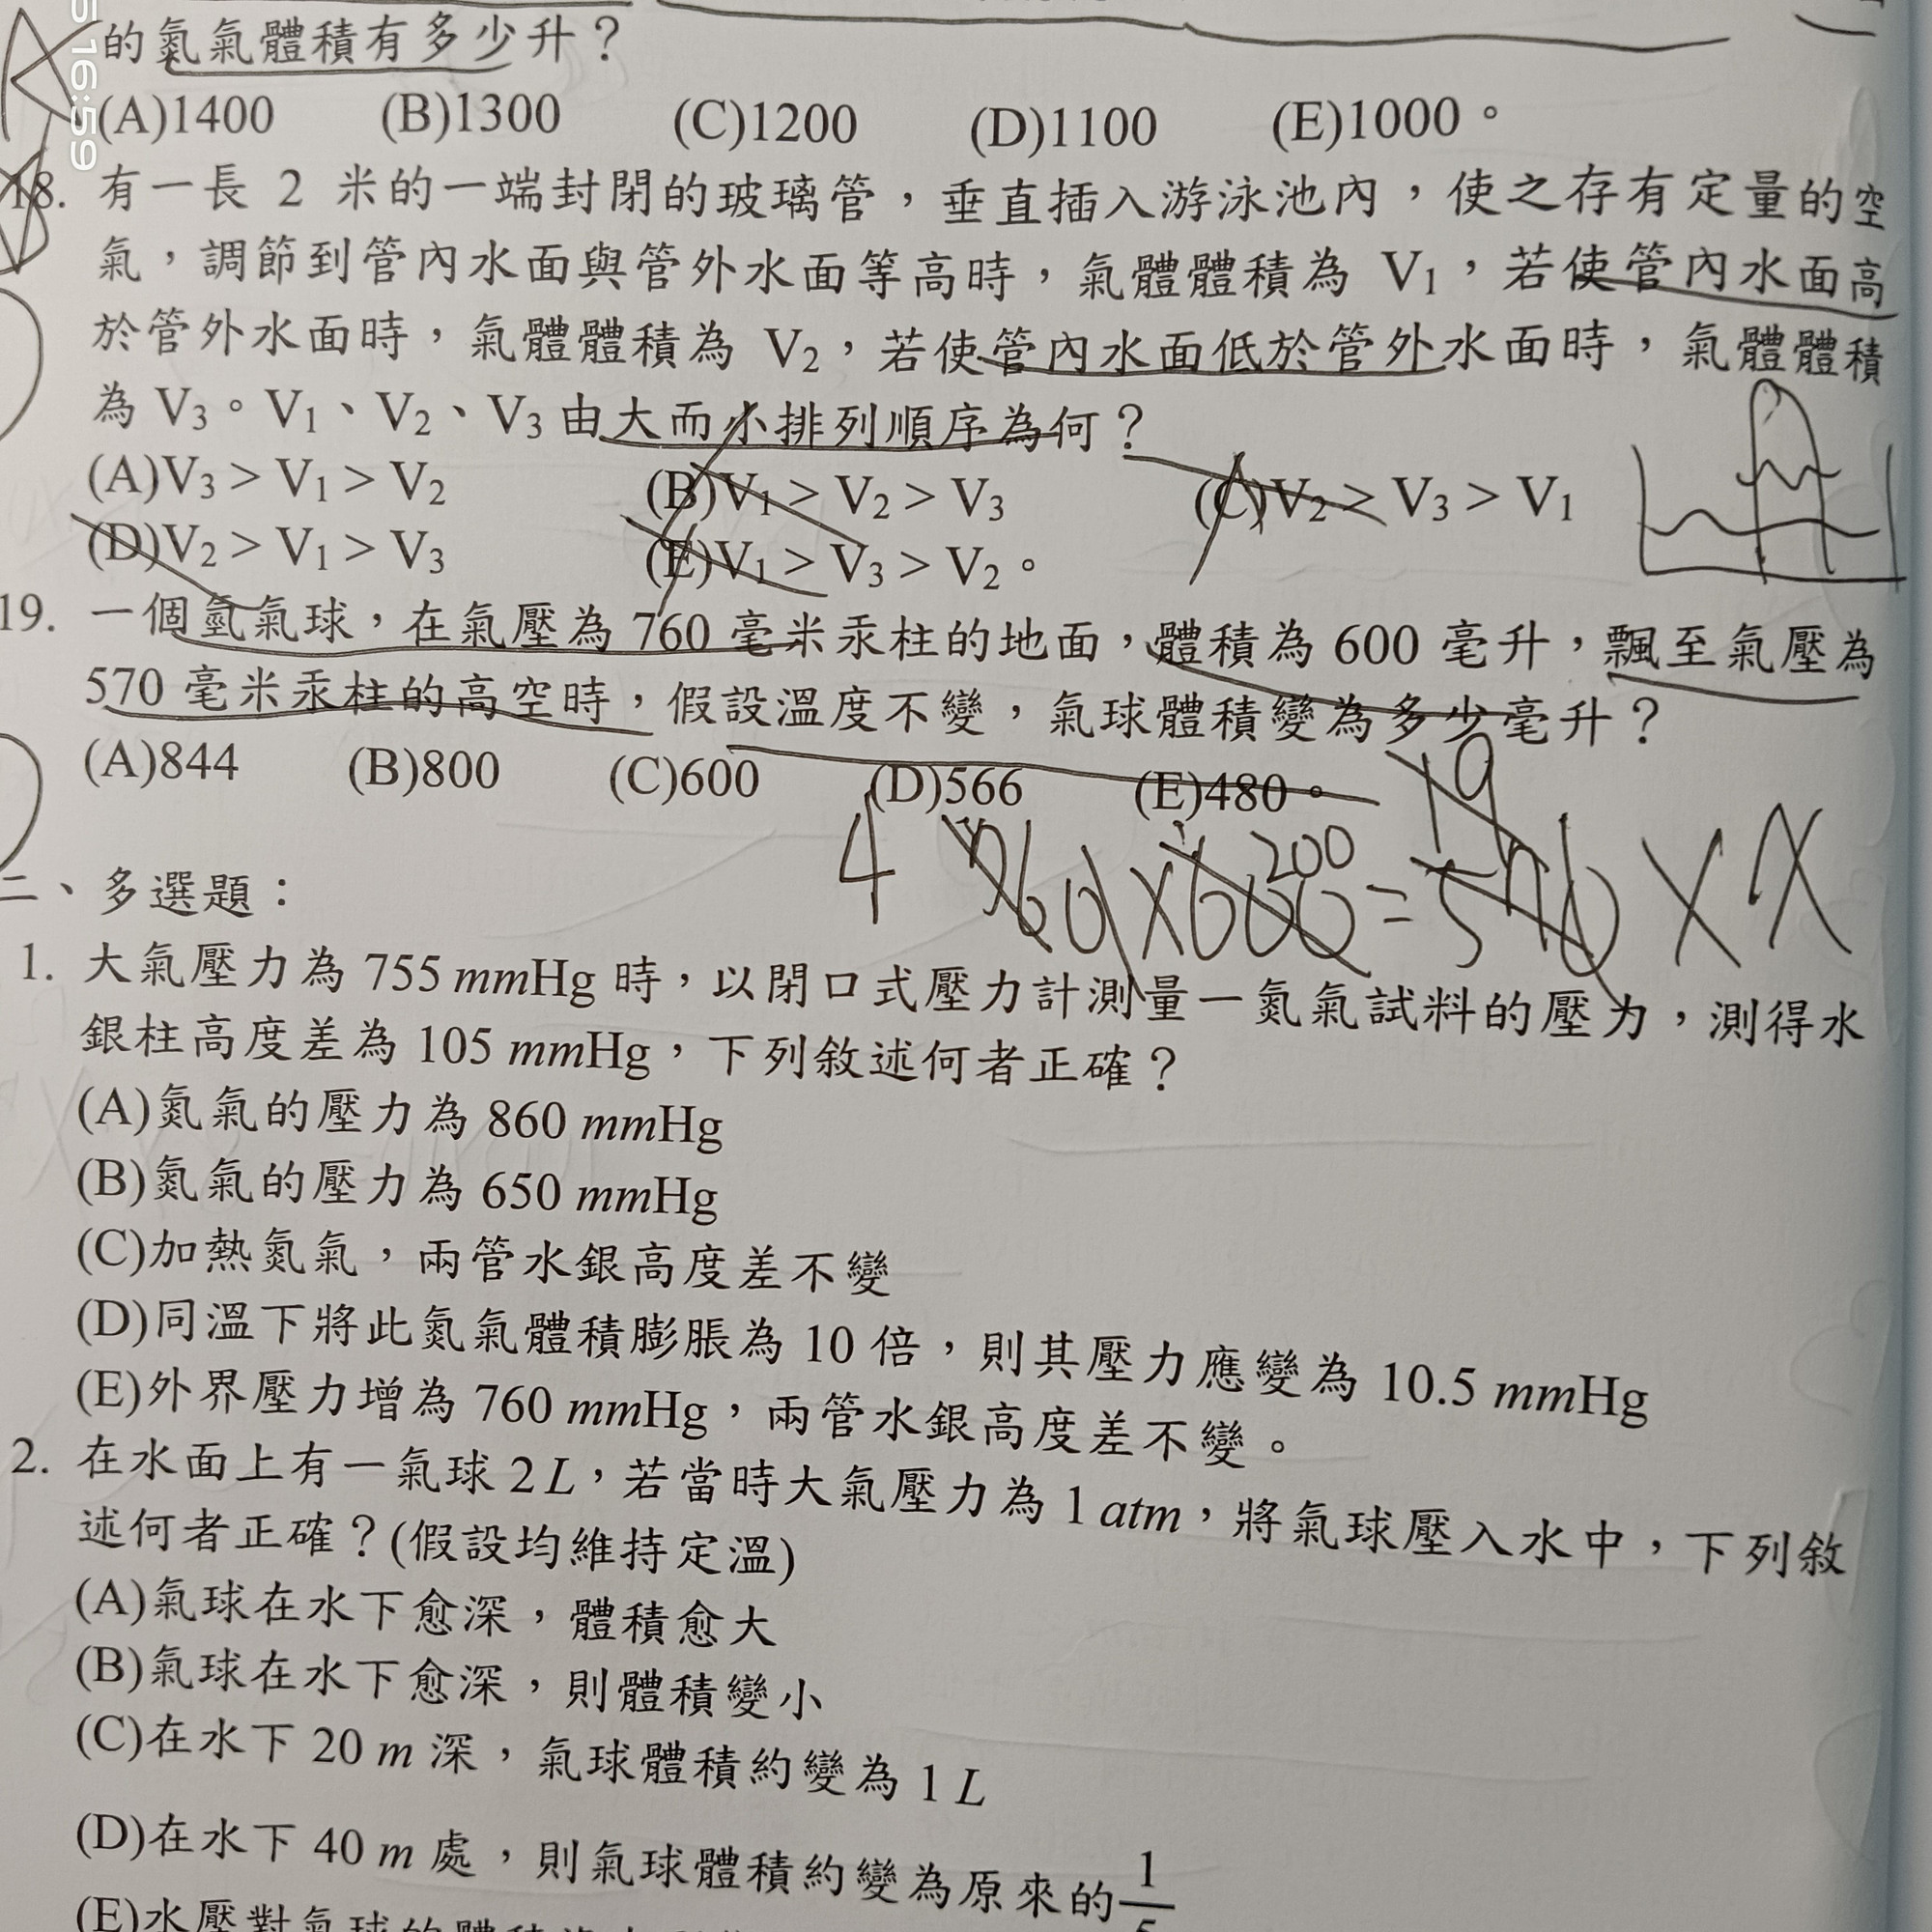 的氮氣體積有多少升？
(A)1400 (B)1300 (C)1200 (D)1100 (E)1000。
16:59
18. 有一長 2 米的一端封閉的玻璃管，垂直插入游泳池內，使之存有定量的空
氣，調節到管內水面與管外水面等高時，氣體體積為 V₁，若使管內水面高
於管外水面時，氣體體積為 V₂，若使管內水面低於管外水面時，氣體體積
為 V₃。V₁、V₂、V₃ 由大而小排列順序為何？
(A)V₃ > V₁ > V₂ (B)V₁ > V₂ > V₃ (C)V₂ > V₃ > V₁
(D)V₂ > V₁ > V₃ (E)V₁ > V₃ > V₂。
19. 一個氫氣球，在氣壓為 760 毫米汞柱的地面，體積為 600 毫升，飄至氣壓為
570 毫米汞柱的高空時，假設溫度不變，氣球體積變為多少毫升？
(A)844 (B)800 (C)600 (D)566 (E)480。
19
4 200
760 × 600 = 570 × X
二、多選題：
1. 大氣壓力為 755 mmHg 時，以閉口式壓力計測量一氮氣試料的壓力，測得水
銀柱高度差為 105 mmHg，下列敘述何者正確？
(A)氮氣的壓力為 860 mmHg
(B)氮氣的壓力為 650 mmHg
(C)加熱氮氣，兩管水銀高度差不變
(D)同溫下將此氮氣體積膨脹為 10 倍，則其壓力應變為 10.5 mmHg
(E)外界壓力增為 760 mmHg，兩管水銀高度差不變。
2. 在水面上有一氣球 2 L，若當時大氣壓力為 1 atm，將氣球壓入水中，下列敘
述何者正確？(假設均維持定溫)
(A)氣球在水下愈深，體積愈大
(B)氣球在水下愈深，則體積變小
(C)在水下 20 m 深，氣球體積約變為 1 L
(D)在水下 40 m 處，則氣球體積約變為原來的1/5
(E)水壓對氣球的體積